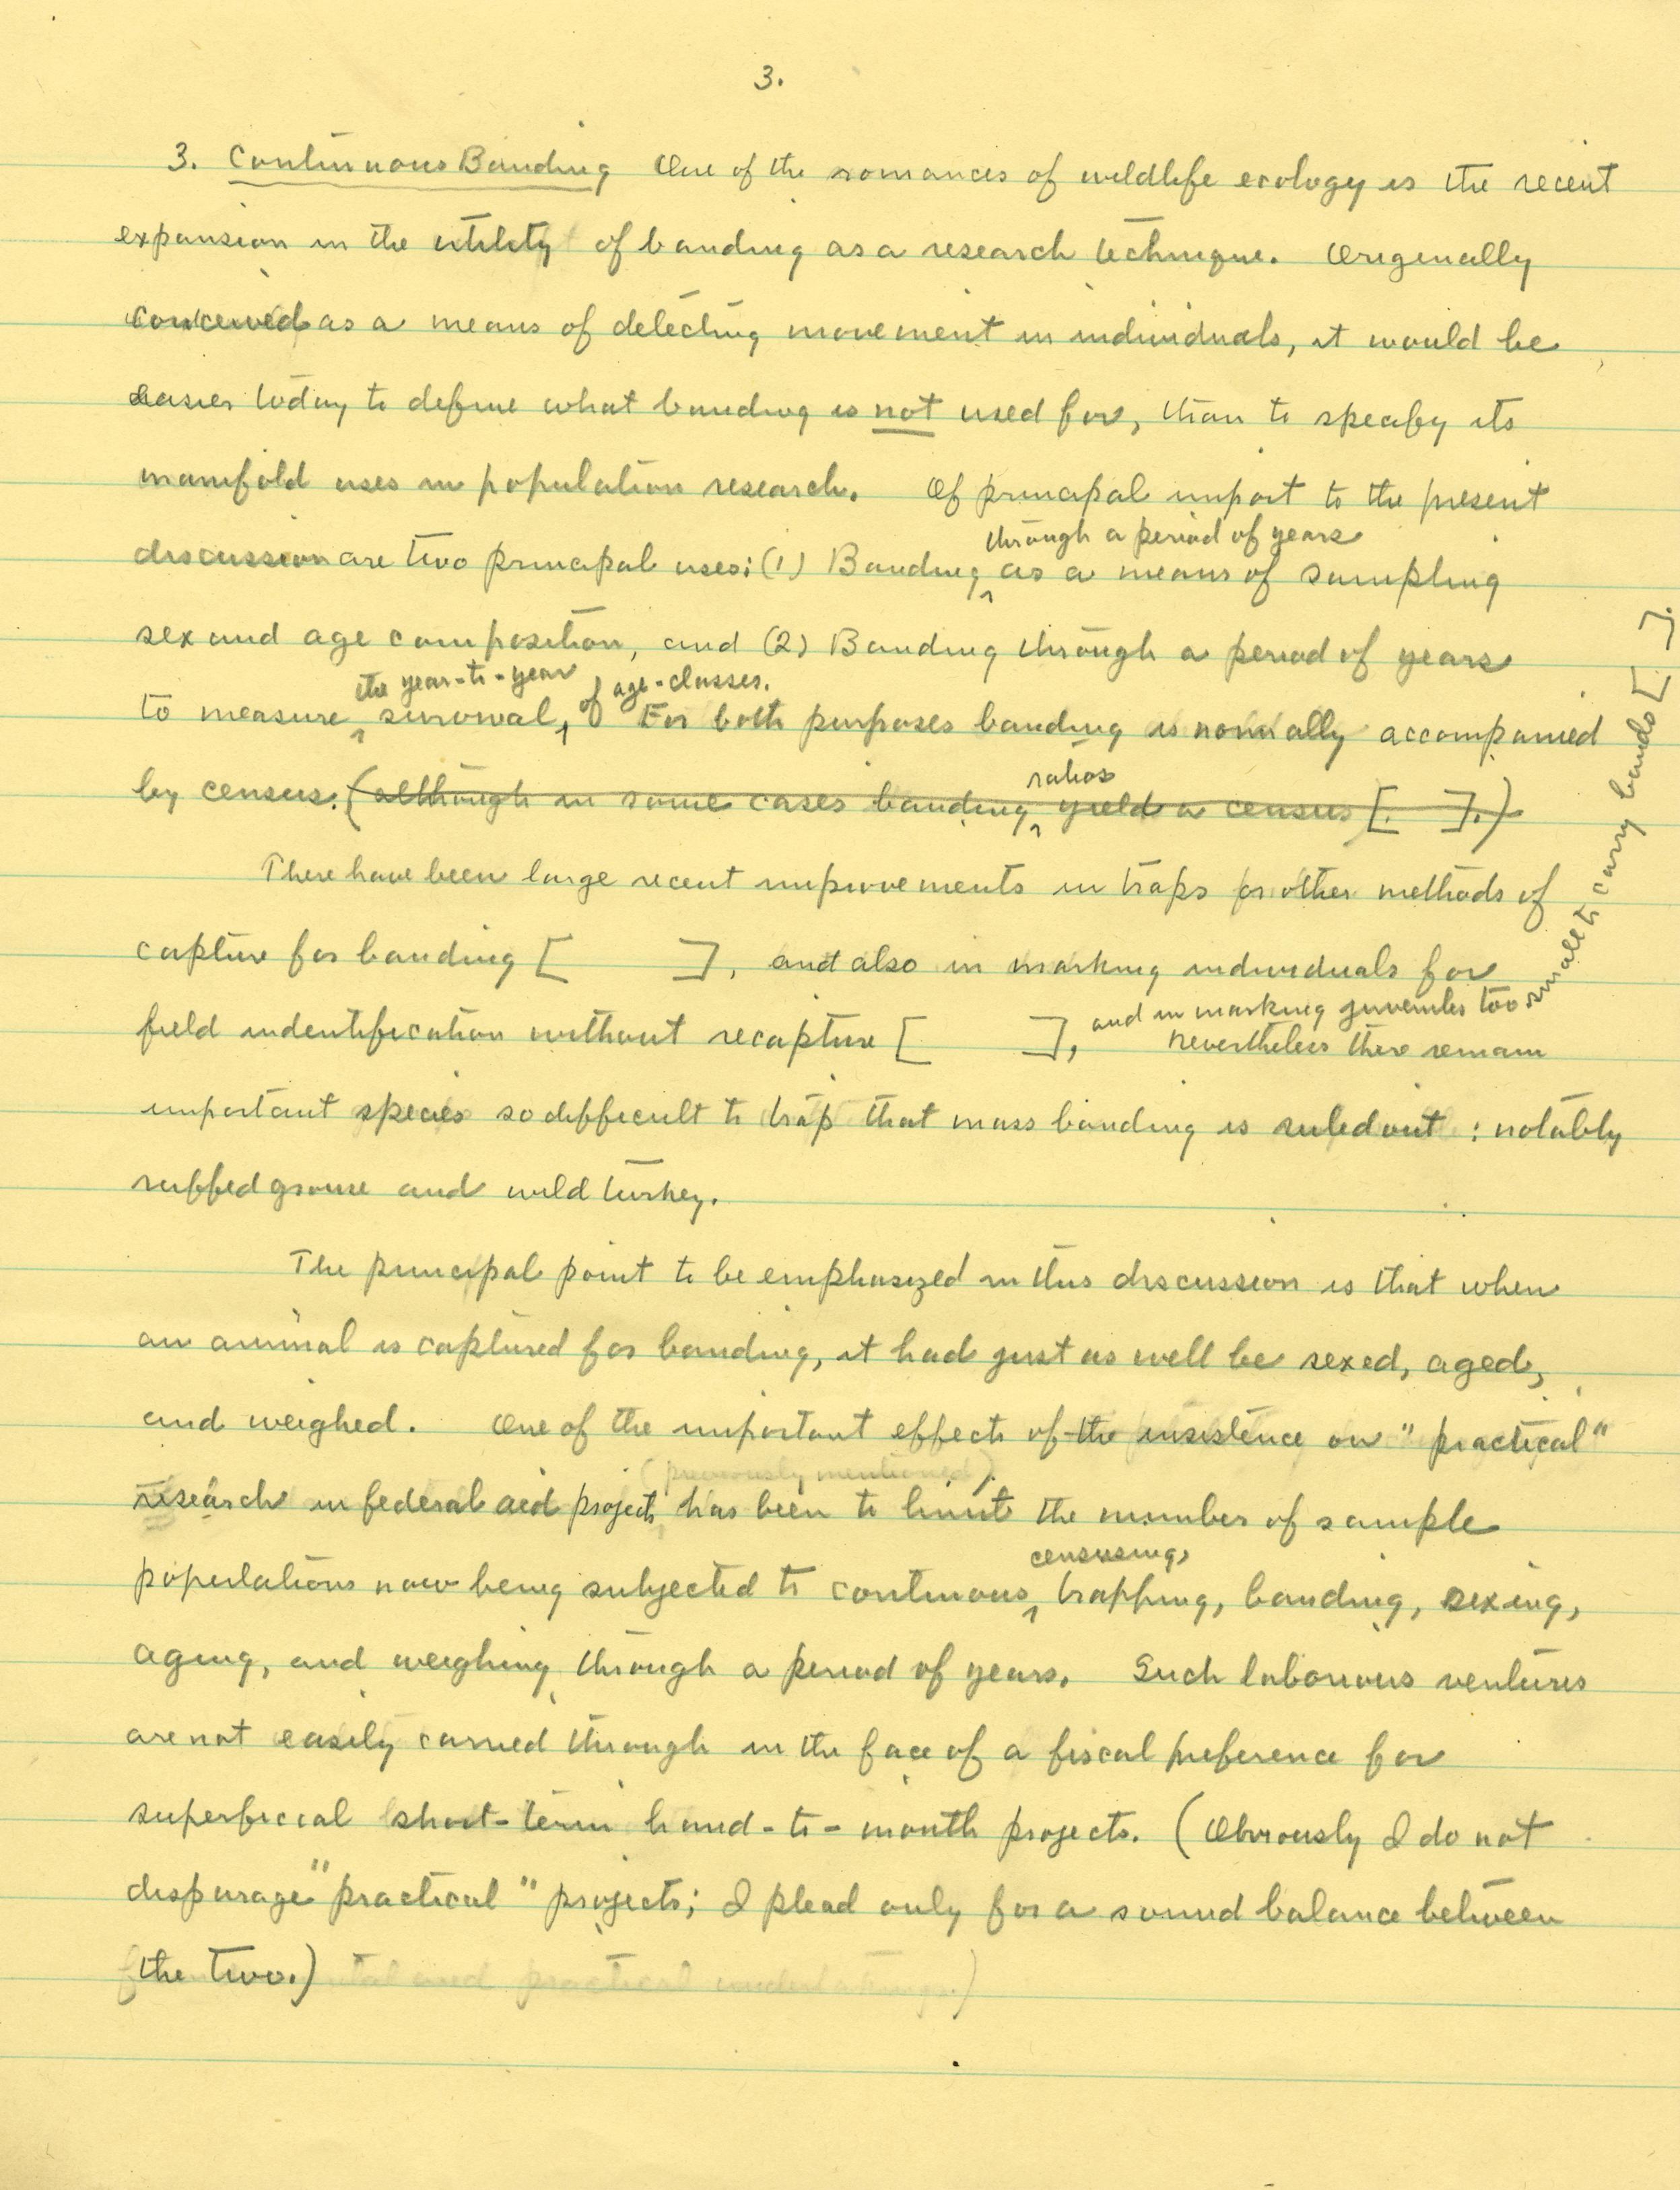 3.
3. Continuous Banding One of the romances of wildlife ecology is the recent
expansion in the utility of banding as a research technique. Originally
conceived as a means of detecting movement in individuals, it would be
easier today to define what banding is not used for, than to specify its
manifold uses in population research. Of principal import to the present
through a period of years
discussion are two principal uses: (1) Banding ^ as a means of sampling
sex and age composition, and (2) Banding through a period of years
the year-to-year of age-classes.
to measure ^ survival, ^ For both purposes banding is normally accompanied
by census. (although in some cases banding ^ yield a census [. ].)
ratios
There have been large recent improvements in traps or other methods of
capture for banding [ ], and also in marking individuals for
field indentification without recapture [ ], and in marking juveniles too small to carry bands [ ].
Nevertheless there remain
important species so difficult to trap that mass banding is ruled out : notably
ruffed grouse and wild turkey.
The principal point to be emphasized in this discussion is that when
an animal is captured for banding, it had just as well be sexed, aged,
and weighed. One of the important effects of the insistence on "practical"
(previously mentioned)
research in federal aid projects has been to limit the number of sample
censusing,
populations now being subjected to continuous ^ trapping, banding, sexing,
aging, and weighing through a period of years. Such laborious ventures
are not easily carried through in the face of a fiscal preference for
superficial short-term hand-to-mouth projects. (Obviously I do not
disparage "practical" projects; I plead only for a sound balance between
the two.) and practical undertakings.)